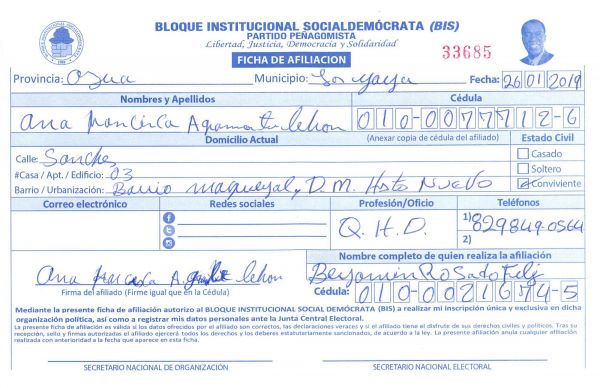 BLOQUE INSTITUCIONAL SOCIALDEMÓCRATA (BIS)
PARTIDO PEÑAGOMISTA
Libertad, Justicia, Democracia y Solidaridad
FICHA DE AFILIACION
33685
Provincia: Azua Municipio: Fecha: 26 01 2019
Nombres y Apellidos Cédula
Ana 010-0077712-6
Domicilio Actual (Anexar copia de cédula del afiliado) Estado Civil
Calle: Sanchez Casado
#Casa / Apt. / Edificio: 03 Soltero
Barrio / Urbanización: Barrio D.M. Hato Nuevo Conviviente
Correo electrónico Redes sociales Profesión/Oficio Teléfonos
Q.H.D. 1) 829849-0564
2)
Nombre completo de quien realiza la afiliación
Ana Benjamin Rosado Feliz
Firma del afiliado (Firme igual que en la Cédula) Cédula: 010-0021674-5
Mediante la presente ficha de afiliación autorizo al BLOQUE INSTITUCIONAL SOCIAL DEMÓCRATA (BIS) a realizar mi inscripción única y exclusiva en dicha
organización política, así como a registrar mis datos personales ante la Junta Central Electoral.
La presente ficha de afiliación es válida si los datos ofrecidos por el afiliado son correctos, las declaraciones veraces y si el afiliado tiene el disfrute de sus derechos civiles y políticos. Tras su
recepción, sello y firmas autorizadas el afiliado ejercerá todos los derechos y los deberes estatutariamente sancionados, de acuerdo a la ley. La presente afiliación anula cualquier afiliación
realizada con anterioridad a la fecha que aparece en esta ficha.
SECRETARIO NACIONAL DE ORGANIZACIÓN SECRETARIO NACIONAL ELECTORAL